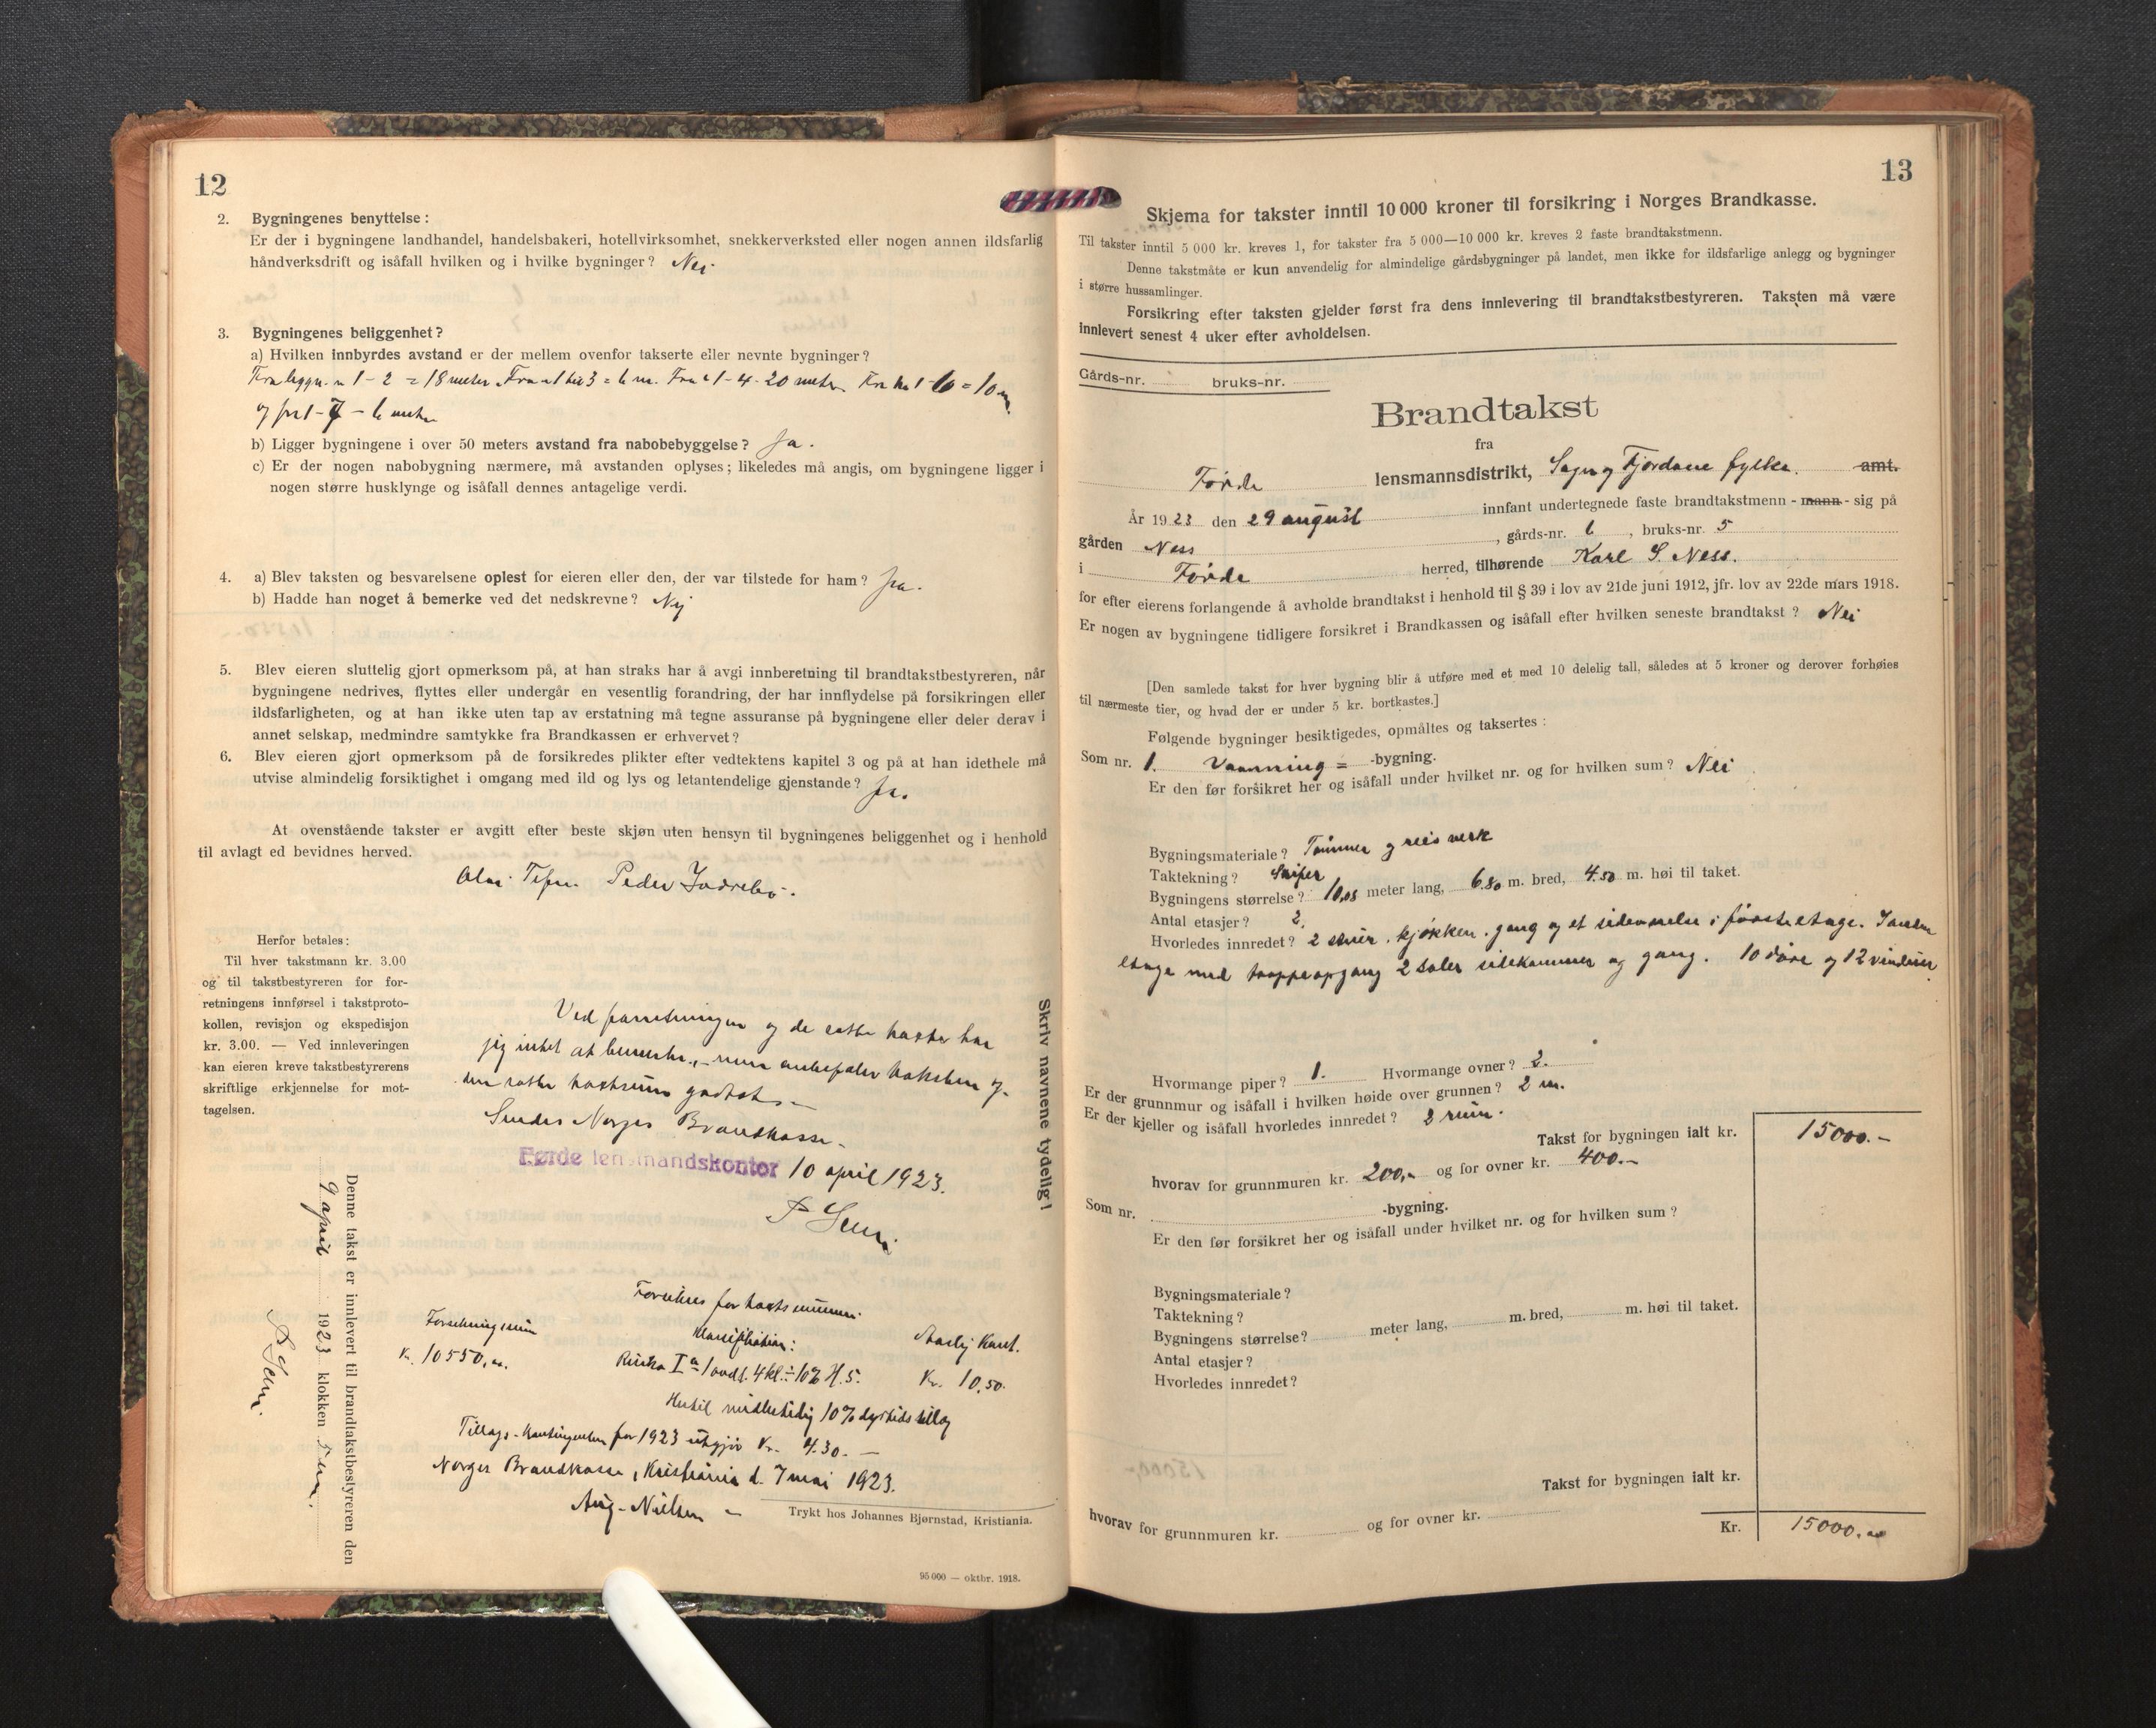 12
2. Bygningenes benyttelse:
Er der i bygningene landhandel, handelsbakeri, hotellvirksomhet, snekkerverksted eller nogen annen ildsfarlig
håndverksdrift og isåfall hvilken og i hvilke bygninger? Nei
3. Bygningenes beliggenhet?
a) Hvilken innbyrdes avstand er der mellem ovenfor takserte eller nevnte bygninger?
Fra 1-2 = 18 meter. Fra 1 til 3 = 6 m. Fra 1-4-20 meter. Fra 1-6 = 10 m
og fra 1-7 - 6 meter
b) Ligger bygningene i over 50 meters avstand fra nabobebyggelse? Ja.
c) Er der nogen nabobygning nærmere, må avstanden oplyses; likeledes må angis, om bygningene ligger i
nogen større husklynge og isåfall dennes antagelige verdi.
4. a) Blev taksten og besvarelsene oplest for eieren eller den, der var tilstede for ham? Ja.
b) Hadde han noget å bemerke ved det nedskrevne? Nej
5. Blev eieren sluttelig gjort opmerksom på, at han straks har å avgi innberetning til brandtakstbestyreren, når
bygningene nedrives, flyttes eller undergår en vesentlig forandring, der har innflydelse på forsikringen eller
ildsfarligheten, og at han ikke uten tap av erstatning må tegne assuranse på bygningene eller deler derav i
annet selskap, medmindre samtykke fra Brandkassen er erhvervet?
6. Blev eieren gjort opmerksom på de forsikredes plikter efter vedtektens kapitel 3 og på at han idethele må
utvise almindelig forsiktighet i omgang med ild og lys og letantendelige gjenstande? Ja.
At ovenstående takster er avgitt efter beste skjøn uten hensyn til bygningenes beliggenhet og i henhold
til avlagt ed bevidnes herved.
Peder
Herfor betales:
Til hver takstmann kr. 3.00
og til takstbestyreren for for-
retningens innførsel i takstproto-
kollen, revisjon og ekspedisjon
kr. 3.00. — Ved innleveringen
kan eieren kreve takstbestyrerens
skriftlige erkjennelse for mot-
tagelsen.
Ved forretningen og de satte takster har
jeg intet at bemerke, men anbefaler taksten og
den satte takstsum godtat.
Sendes Norges Brandkasse.
Førde lensmandskontor 10 april 1923.
Skriv navnene tydelig!
Denne takst er innlevert til brandtakstbestyreren den
9 april 1923 klokken
Forsikres for takstsummen.
Forsikringssum
Klassifikation:
Aarlig Kont.
Kr. 10550,
Risiko I a 4 kl. ÷ 10% H.S.
Kr. 10,50.
Hertil midlertidig 10% dyrtidstillæg
Tillægs-Kontingenten for 1923 utgjør Kr. 4.30.
Norges Brandkasse, Kristiania d. 7 mai 1923.
Aug. Nielsen
Trykt hos Johannes Bjørnstad, Kristiania.
95 000 — oktbr. 1918.
13
Skjema for takster inntil 10 000 kroner til forsikring i Norges Brandkasse.
Til takster inntil 5 000 kr. kreves 1, for takster fra 5 000—10 000 kr. kreves 2 faste brandtakstmenn.
Denne takstmåte er kun anvendelig for almindelige gårdsbygninger på landet, men ikke for ildsfarlige anlegg og bygninger
i større hussamlinger.
Forsikring efter taksten gjelder først fra dens innlevering til brandtakstbestyreren. Taksten må være
innlevert senest 4 uker efter avholdelsen.
Gårds-nr. bruks-nr.
Brandtakst
fra
Førde lensmannsdistrikt, Sogn og Fjordane fylke. amt.
År 1923 den 29 august innfant undertegnede faste brandtakstmenn - mann - sig på
gården Ness, gårds-nr. 6, bruks-nr. 5
i Førde herred, tilhørende Karl S. Ness.
for efter eierens forlangende å avholde brandtakst i henhold til § 39 i lov av 21de juni 1912, jfr. lov av 22de mars 1918.
Er nogen av bygningene tidligere forsikret i Brandkassen og isåfall efter hvilken seneste brandtakst? Nei
[Den samlede takst for hver bygning blir å utføre med et med 10 delelig tall, således at 5 kroner og derover forhøies
til nærmeste tier, og hvad der er under 5 kr. bortkastes.]
Følgende bygninger besiktigedes, opmåltes og taksertes:
Som nr. 1. Vaanning = -bygning.
Er den før forsikret her og isåfall under hvilket nr. og for hvilken sum? Nei
Bygningsmateriale? Tømmer og reisverk
Taktekning? Skifer
Bygningens størrelse? 10,08 meter lang, 6.80 m. bred, 4.50 m. høi til taket.
Antal etasjer? 2.
Hvorledes innredet? 2 stuer. kjøkken. gang og et sideværelse i første etage. I anden
etage med trappeopgang 2 saler sidekammer og gang. 10 døre og 12 vinduer.
Hvormange piper? 1. Hvormange ovner? 2.
Er der grunnmur og isåfall i hvilken høide over grunnen? 2 m.
Er der kjeller og isåfall hvorledes innredet? 2 rum.
Takst for bygningen ialt kr. 15000.-
hvorav for grunnmuren kr. 200,- og for ovner kr. 400.-
Som nr. -bygning.
Er den før forsikret her og isåfall under hvilket nr. og for hvilken sum?
Bygningsmateriale?
Taktekning?
Bygningens størrelse? meter lang, m. bred, m. høi til taket.
Antal etasjer?
Hvorledes innredet?
Takst for bygningen ialt kr.
hvorav for grunnmuren kr. og for ovner kr.
Kr. 15000,-